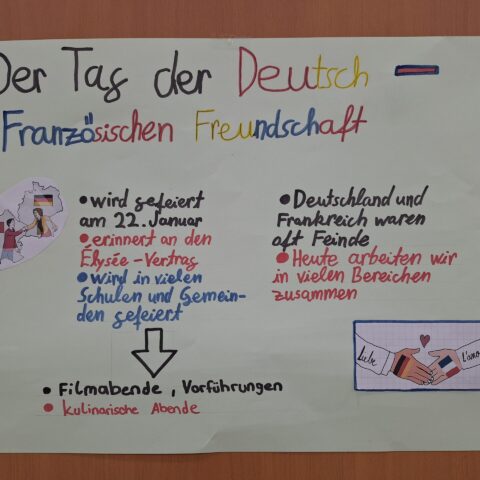 Der Tag der Deutsch –
Französischen Freundschaft
• wird gefeiert
am 22. Januar
• erinnert an den
Élysée-Vertrag
• wird in vielen
Schulen und Gemein-
den gefeiert
• Filmabende, Vorführungen
• kulinarische Abende
• Deutschland und
Frankreich waren
oft Feinde
• Heute arbeiten wir
in vielen Bereichen
zusammen
Liebe